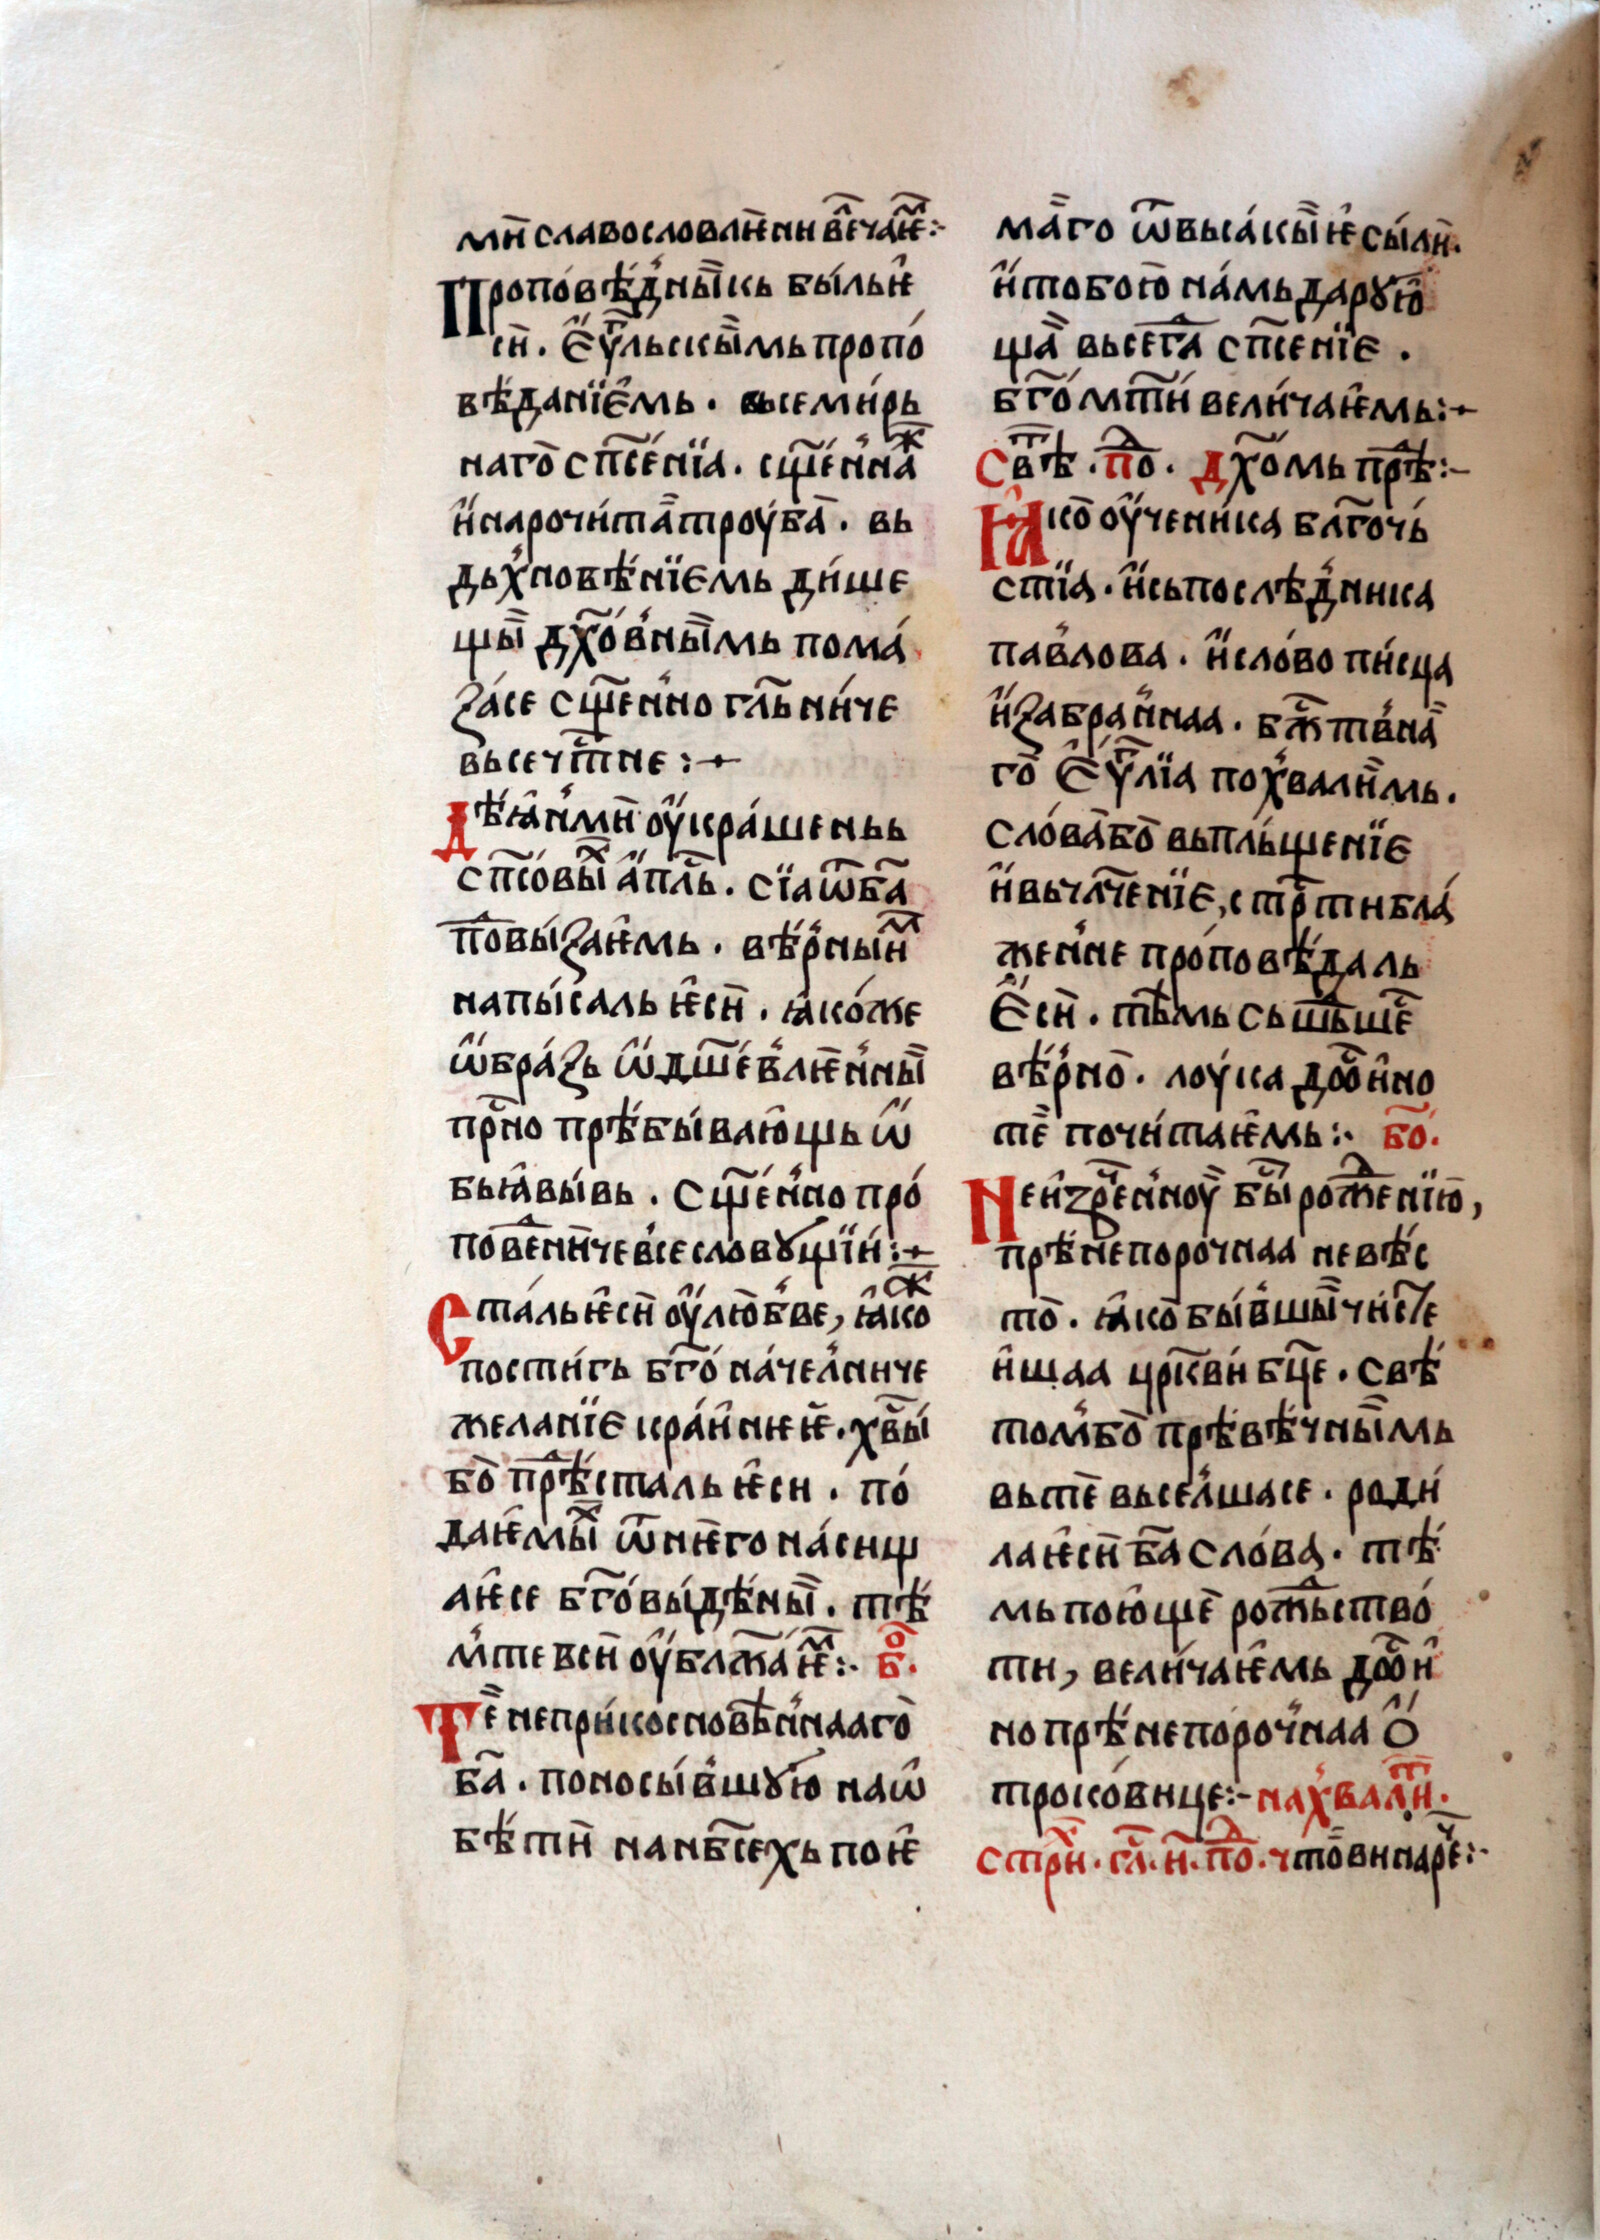 мы̏ славословлѥ́ни вѣ̑нчаѥ̑м:·
Пропо́вѣд̾ны̏кь бы́ль ѥ̑
сы̏. Є҆ѵ҃льскы̏мь пропо́
вѣданїѥ̑мь. вьсеми́рь
наго̀ сп҃се́нїа. сщ҃е́н̾на ж
и҆ нарочи́та̏ троу́ба̀. вь
дьх̾нове́нїѥмь ди́ше
щы̏ дх҃о́в̾ны̏мь пома́
ꙁа́се сщ҃е́н̾но гл҃ьни́че
вьсечⷭ҇тне:·
Дѣꙗ̑н̾ми̏ оу҆кра́шень ь
сп҃со́вы̏х а҆пⷭ҇ль. сїа ѿб҃а
повы́ꙁаѥ̑мь. вѣ́р̾ны̏им
напы́саль ѥ̑сы̏. ꙗ̑ко́же
ѡ҆бра́ꙁь ѡ҆дш҃е́в̾лѥ̏н̾ны̏
прⷭ҇но прѣбы́ваю̑щь ѡ҆
бьꙗ̑вы́вь. Сщ҃е́н̾но про́
повⷣени̏че в̾сесловꙋщїи́:·
Ста́ль ѥ̑сы̏ оу҆ лю̏б̾ве, ꙗ̑ко ск
пости́гь бг҃о́ нача́лниче
желанїѥ кра́и̑нѥѥ̏. хв҃ы́
бо̏ прⷣѣсталь ѥ̑си. по́
даѥ̑мы̏х ѿнѥ̏го на́сищ
аѥ̑се бг҃овы́дѣ̑ны̏. тѣ́
м̾ те вси̏ оу҆блж҃аѥ̑м:· б҃о.
Те̏ неприкоснове́н̾нааго̏
б҃а. поносы́в̾шꙋю наѡ҆
бѣ́ти̏ на нб҃сехь поѥ̑
ма̏го ѿвьса́кы̏ѥ̑ сы́ли̏.
и҆ тобою̏ на́мь дарꙋю̑
ща̏ вьсегⷣа сп҃сенїѥ.
бг҃о́мт҃и́ вели́чаѥ̑мь:·
Свⷮѣ. поⷣ. дх҃о́мь прⷣѣ:·
Ꙗ҆ко̏ оу҆чени́ка бл҃гочь́
стїа. и҆ сьпослѣд̾ника
пав̾лова. и҆ сло́во пи́сца
и҆ꙁабран̾наа. бжⷭ҇тв̾на̏
го̏ Є҆ѵ҃лїа пох̾валим̏ь.
сло́ва̏ бо̏ вьпль́щенїѥ
и҆ вьчл҃че́нїѥ, стрⷭ҇ти бла́
жен̾не про́повѣ́даль
Є҆сы̏. тѣ̑мь сьшьⷣшеⷭ҇
вѣ́р̾но̏. лоу́ка дⷭ҇ои̑но
те̏ почи́таѥ̑мь:· б҃о.
Неи̑ꙁрⷱ҇ен̾ноу̏ бⷭ҇ы рожⷣенїю̏,
прѣ́непорочнаа невѣ́с
то̏. ꙗ̑ко̏ бы́в̾шы̏ чи́сте
и̑щаа црк҃ви́ бц҃е. свѣ́
том̾бо̏ прѣвѣ́чны̏мь
вьте̏ вьсе́л̾шасе. роди́
ла ѥ̑сы̏ б҃а сло́ва. тѣ́
мь пою̑ще̏ рожⷣьство́
ти, вели́чаѥ̑мь дⷭ҇ои̑
но прѣ́непоро́ч̾наа Ѻ҆
трокови́це:· нах̾валⷮи.
стрⷯи. гл҃. и҃. поⷣ. что̏ ви нареⷱ:·